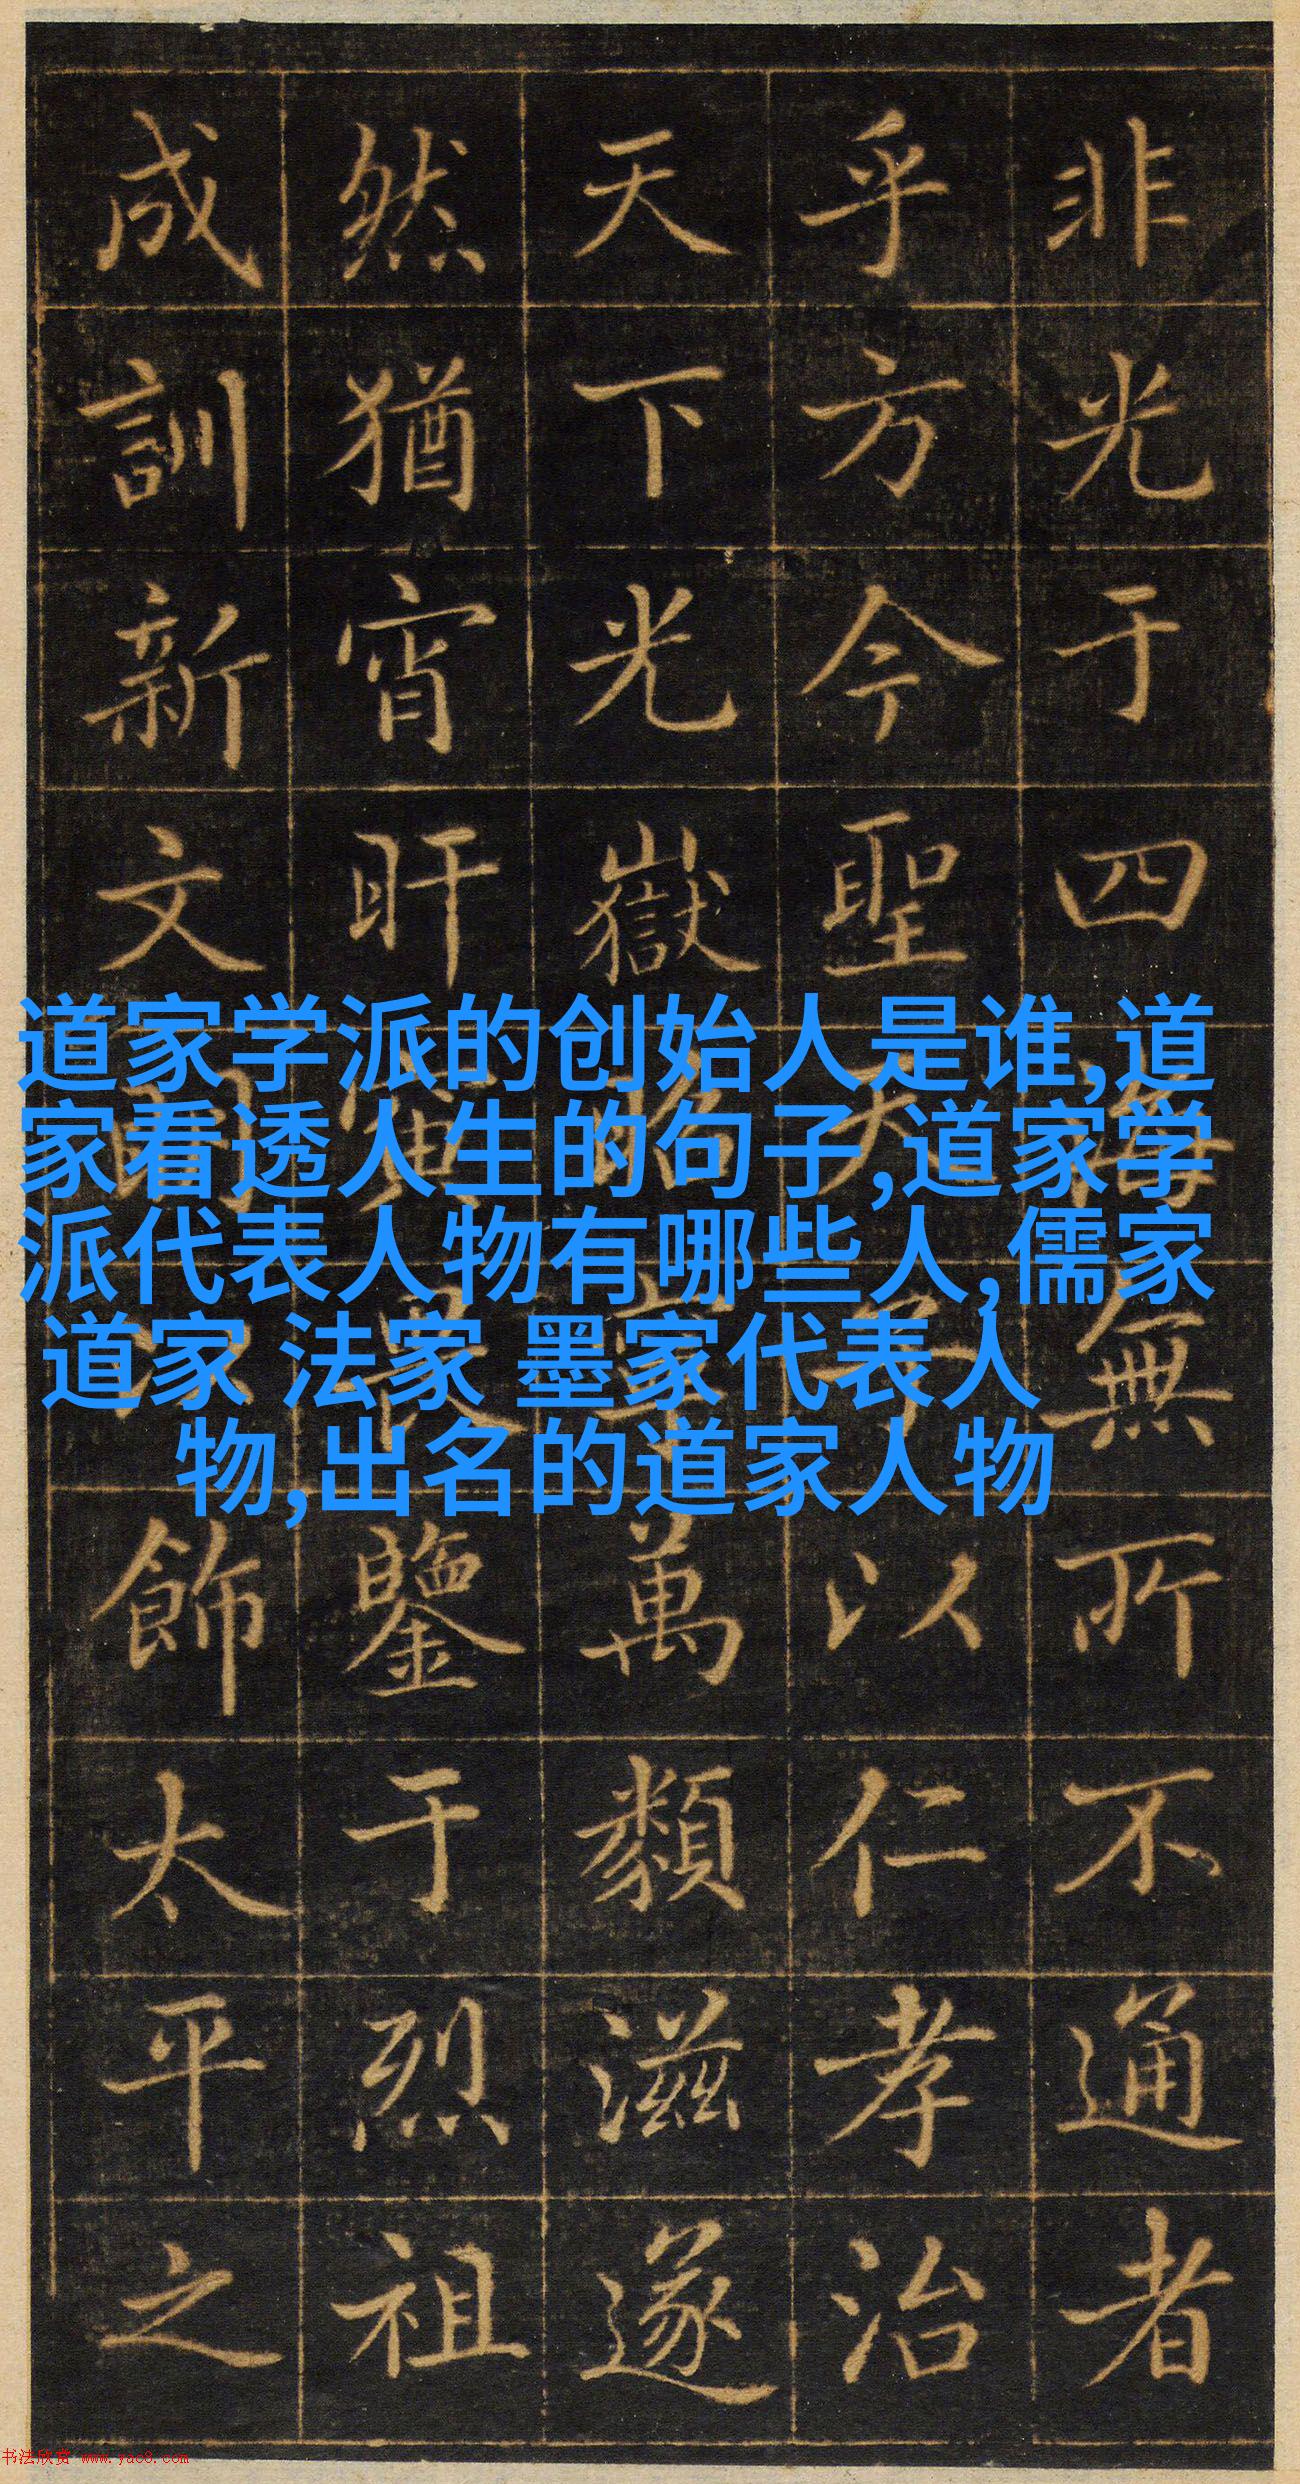 非光于四海無所不通者
乎方今聖天子以仁孝治
天下光嶽萬類滋遂
然猶宵旰寅畏鑒于烈祖
成訓新文飾太平之
道家学派的创始人是谁,道
家看透人生的句子,道家学
派代表人物有哪些人,儒家
道家 法家 墨家代表人
物,出名的道家人物
书法欣赏 www.yac8.com